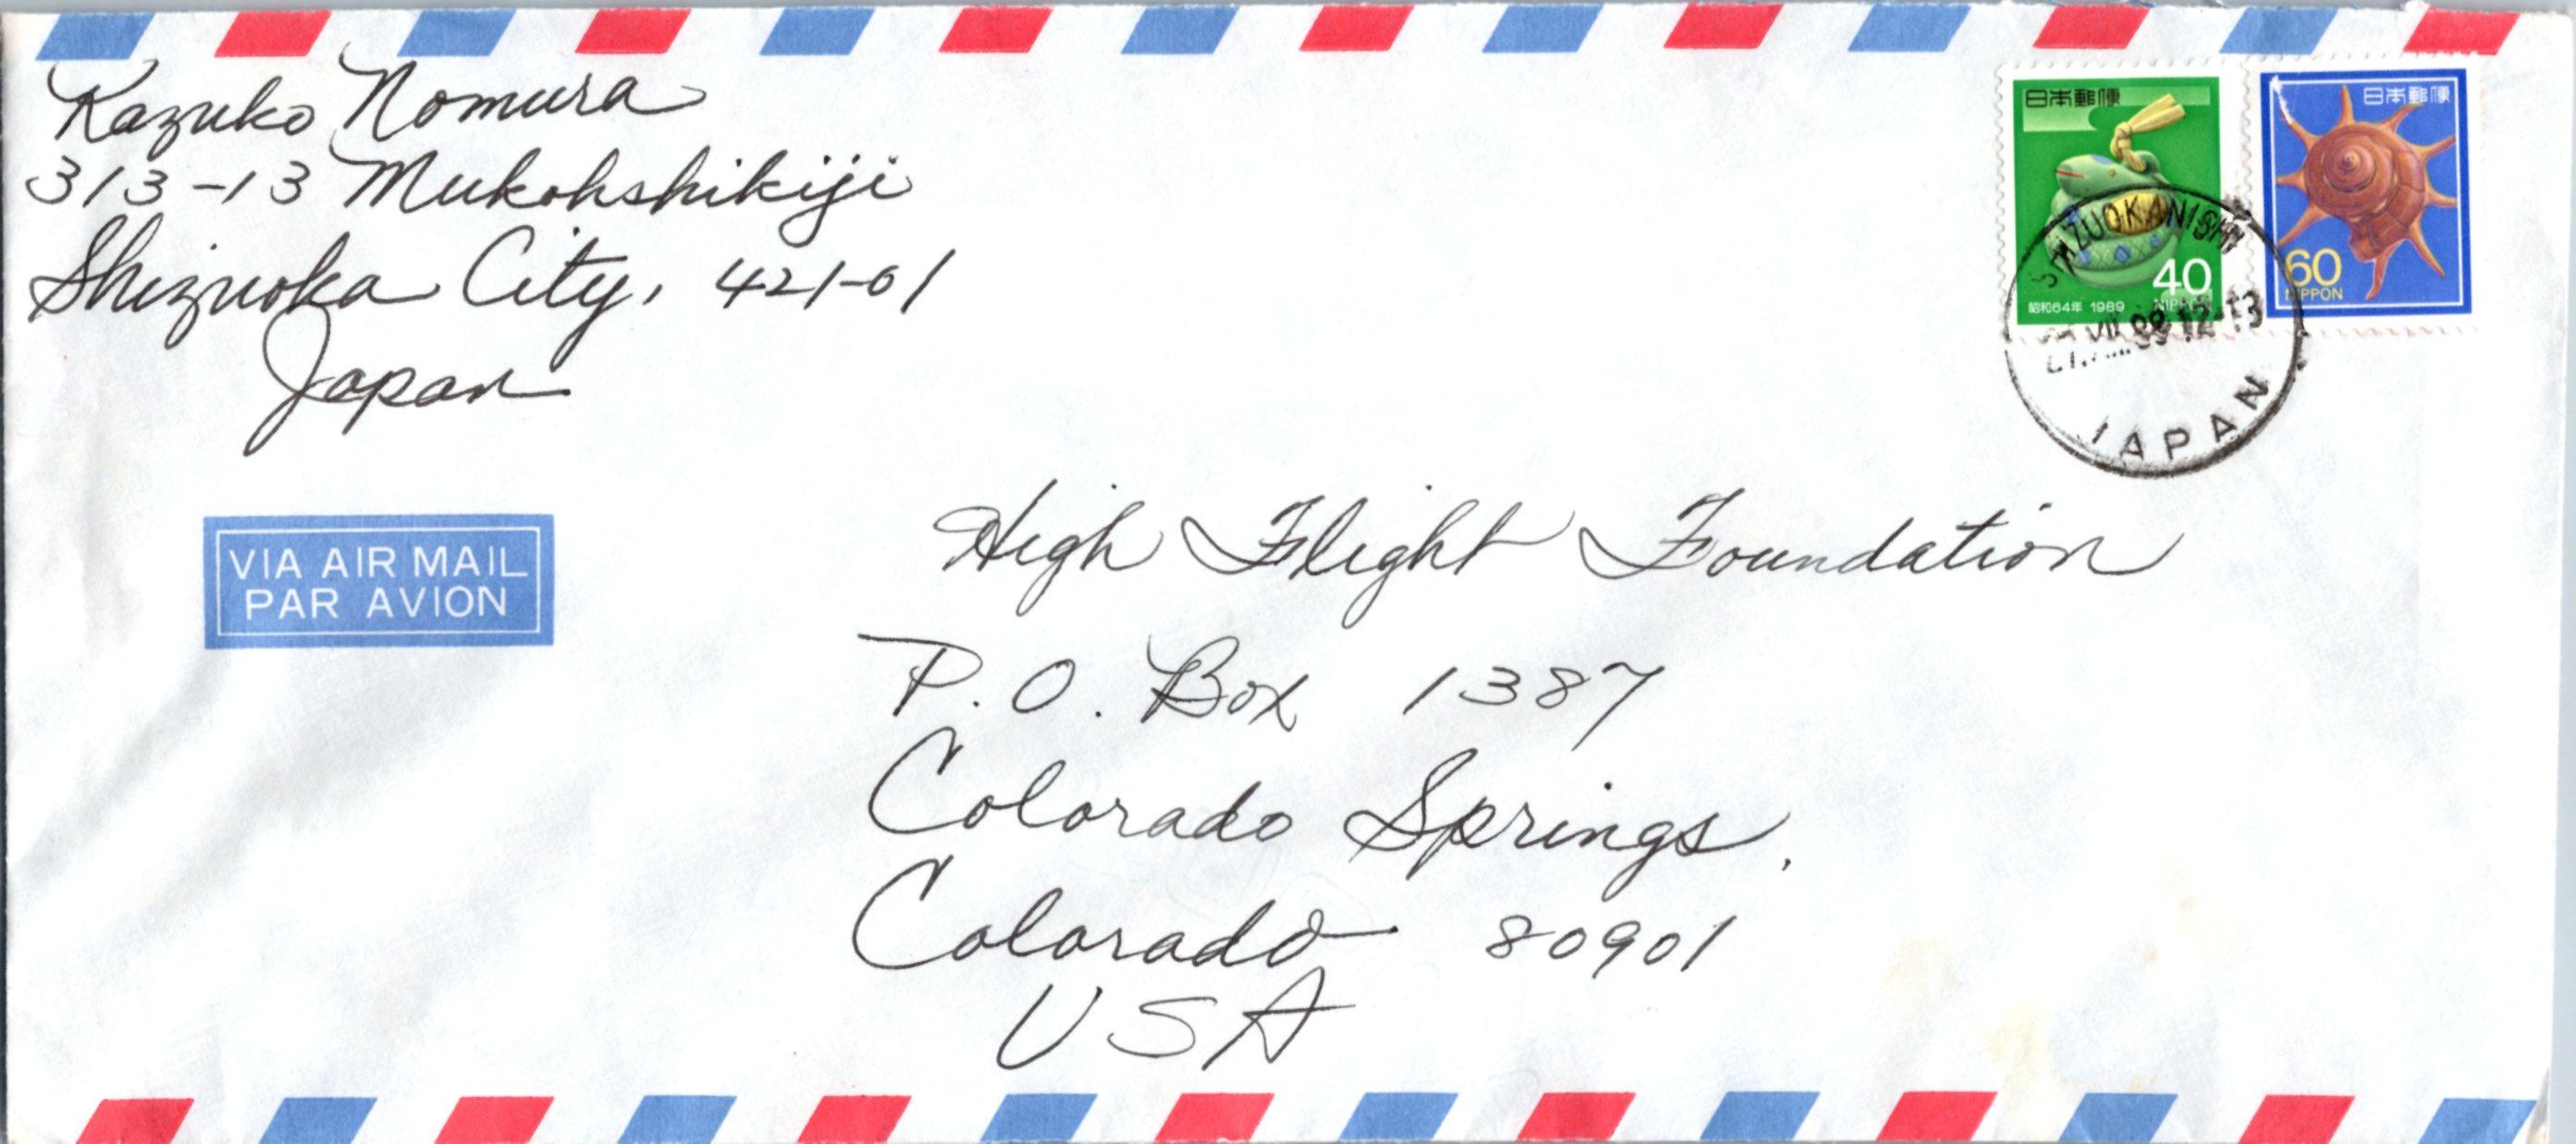 Kazuko Nomura
313-13 Mukohshikiji
Shizuoka City, 421-01
Japan
日本郵便
40
NIPPON
昭和64年 1989
日本郵便
60
NIPPON
SHIZUOKANISHI
12-13
JAPAN
VIA AIR MAIL
PAR AVION
High Flight Foundation
P.O. Box 1387
Colorado Springs,
Colorado 80901
USA